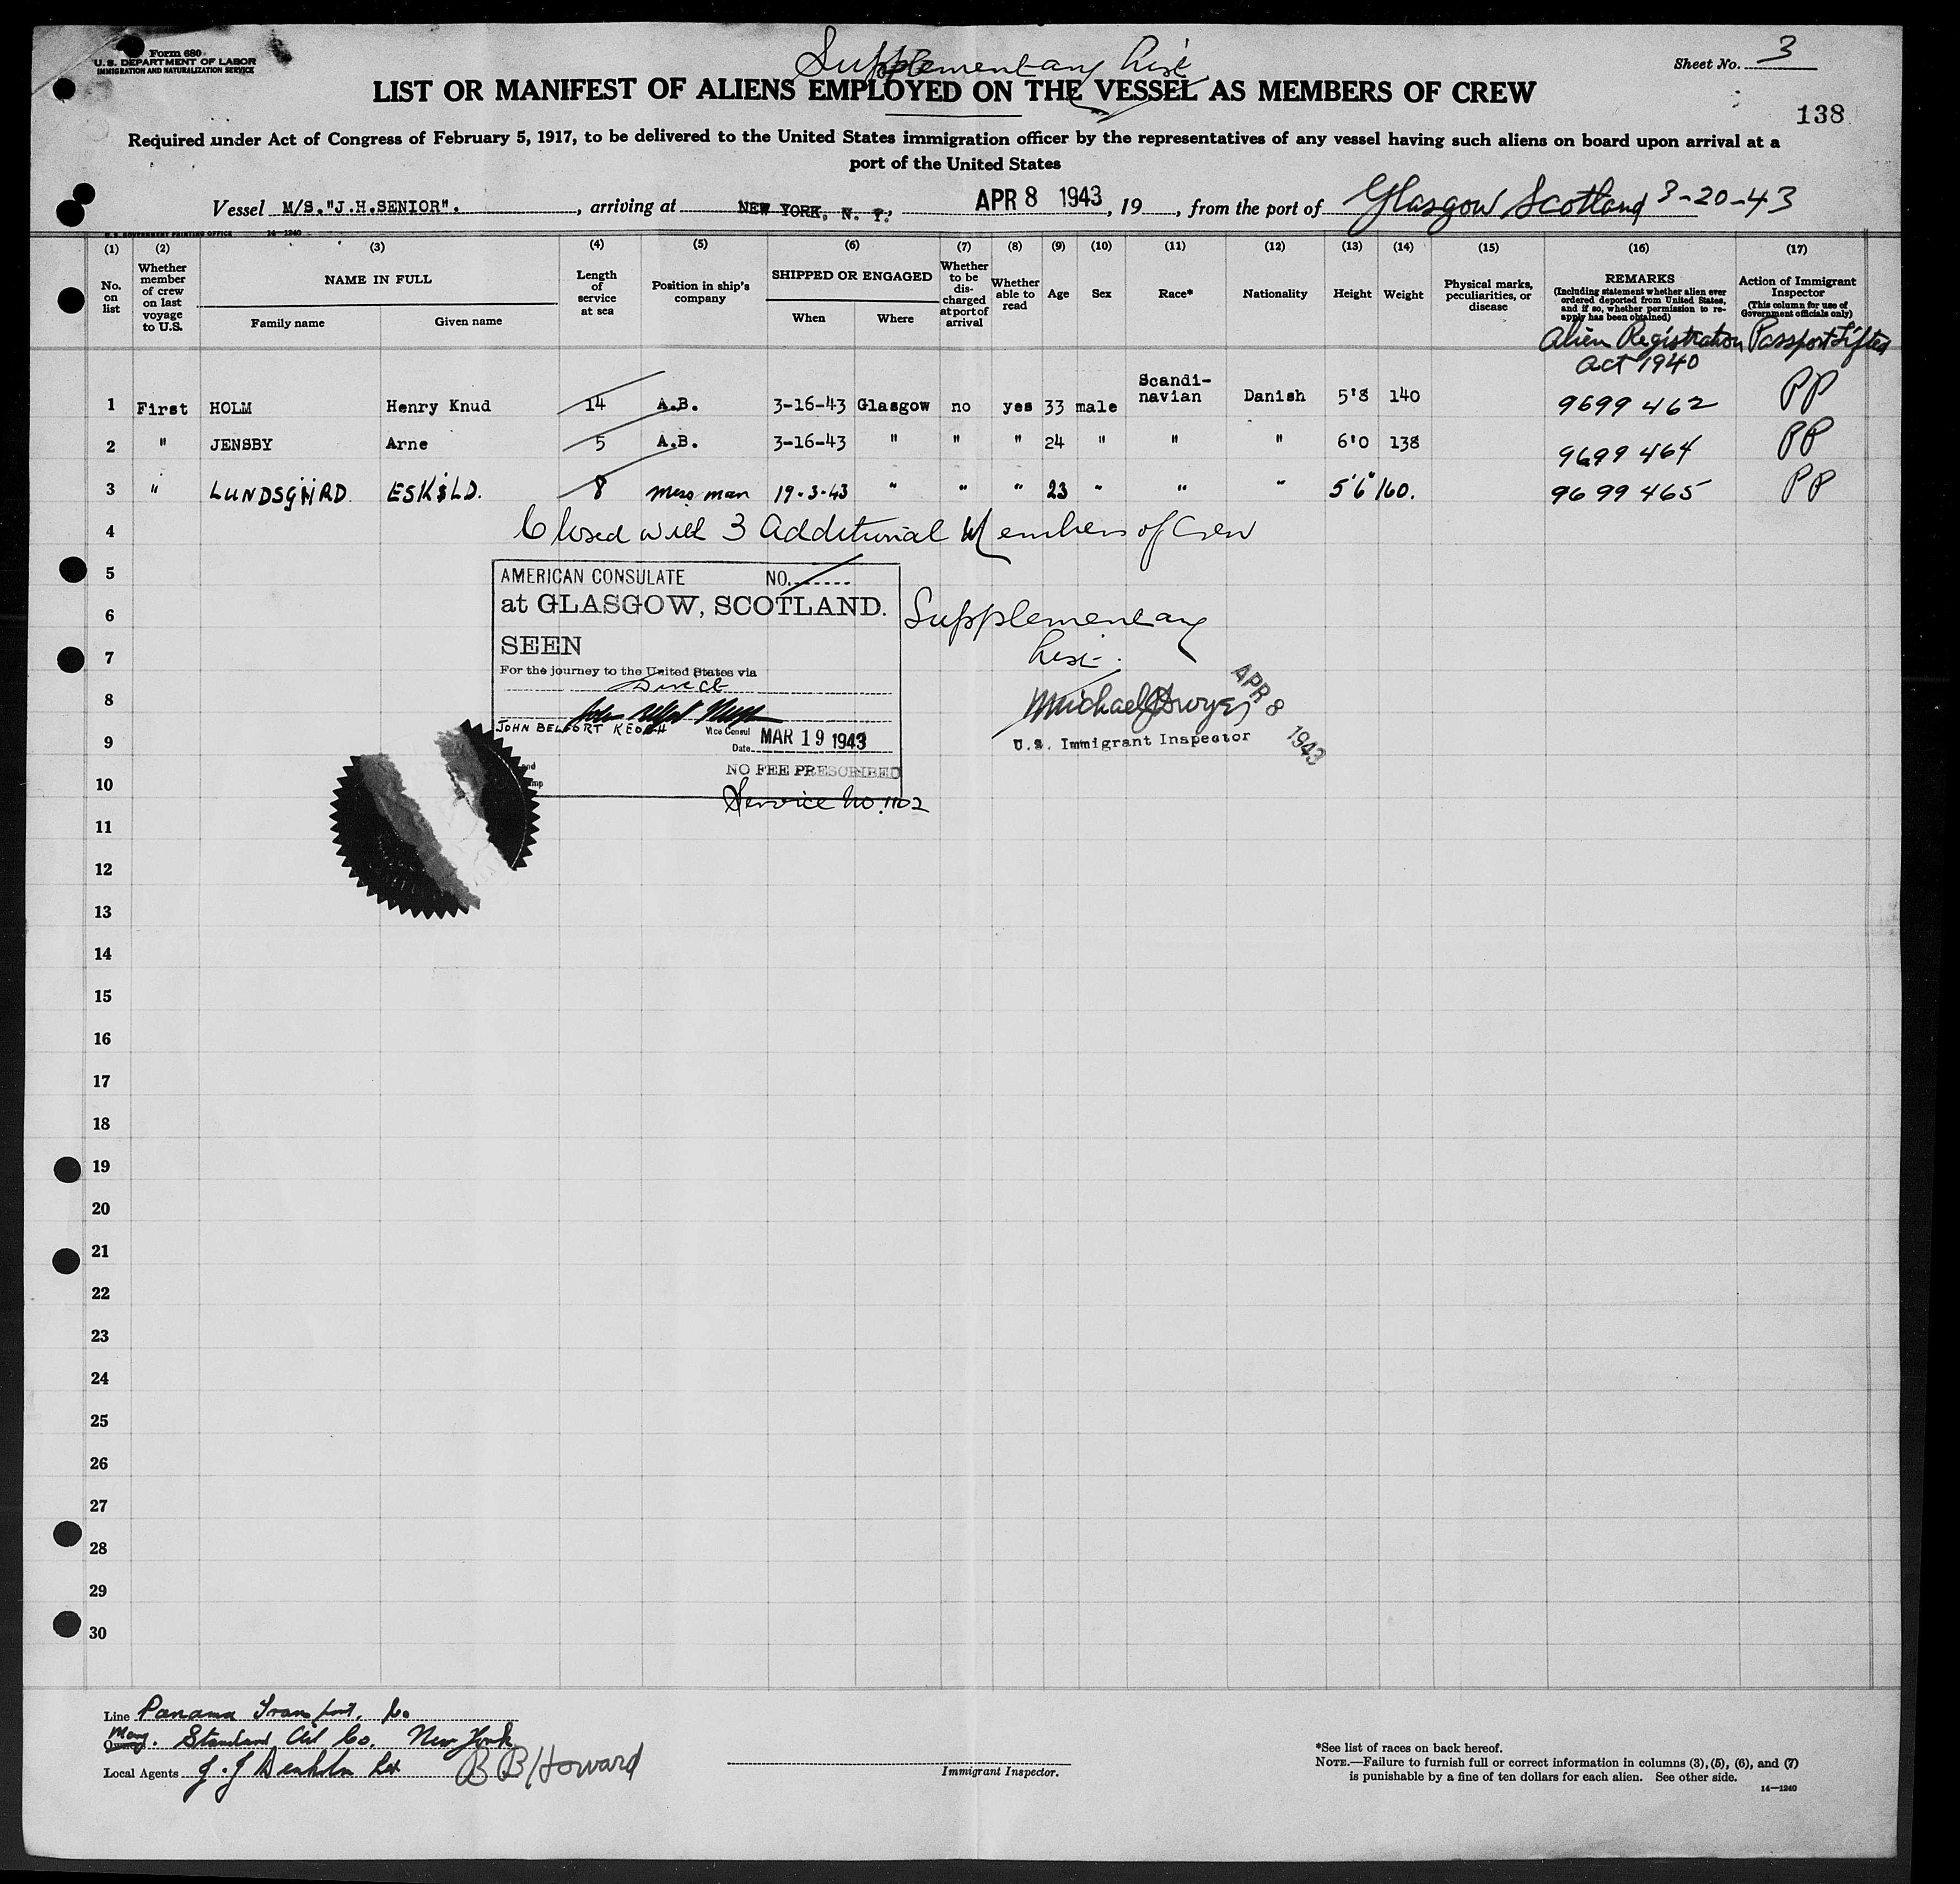 Form 680
U.S. DEPARTMENT OF LABOR
IMMIGRATION AND NATURALIZATION SERVICE
Supplementary List
Sheet No. 3
LIST OR MANIFEST OF ALIENS EMPLOYED ON THE VESSEL AS MEMBERS OF CREW
138
Required under Act of Congress of February 5, 1917, to be delivered to the United States immigration officer by the representatives of any vessel having such aliens on board upon arrival at a
port of the United States
Vessel M/S."J.H.SENIOR". , arriving at NEW YORK, N. Y., APR 8 1943, 19 , from the port of Glasgow Scotland 3-20-43
U.S. GOVERNMENT PRINTING OFFICE 14-1240
(1) (2) (3) (4) (5) (6) (7) (8) (9) (10) (11) (12) (13) (14) (15) (16) (17)
No. on list
Whether member of crew on last voyage to U.S.
NAME IN FULL
Family name
Given name
Length of service at sea
Position in ship's company
SHIPPED OR ENGAGED
When
Where
Whether to be discharged at port of arrival
Whether able to read
Age
Sex
Race*
Nationality
Height
Weight
Physical marks, peculiarities, or disease
REMARKS
(Including statement whether alien ever ordered deported from United States, and if so, whether permission to reapply has been obtained)
Action of Immigrant Inspector
(This column for use of Government officials only)
Alien Registration Act 1940
Passport Lifted
1 First HOLM Henry Knud 14 A.B. 3-16-43 Glasgow no yes 33 male Scandi-navian Danish 5'8 140 9699 462 PP
2 " JENSBY Arne 5 A.B. 3-16-43 " " " 24 " " " 6'0 138 9699 464 PP
3 " LUNDSGÅRD ESKILD. 8 mess man 19-3-43 " " " 23 " " " 5'6" 160. 9699 465 PP
4 Closed with 3 Additional Members of Crew
5
6
7
8
9
10
11
12
13
14
15
16
17
18
19
20
21
22
23
24
25
26
27
28
29
30
AMERICAN CONSULATE NO.
at GLASGOW, SCOTLAND.
SEEN
For the journey to the United States via
Direct
JOHN BELFORT KEOGH Vice Consul
Date MAR 19 1943
NO FEE PRESCRIBED
Service No. 1102
Supplementary
List.
Michael J Dwyer
U.S. Immigrant Inspector
APR 8 1943
Line Panama Transport. Co
Mang. Owners Standard Oil Co. New York
Local Agents J. J Denholm Ltd
B B Howard
Immigrant Inspector.
*See list of races on back hereof.
NOTE.—Failure to furnish full or correct information in columns (3), (5), (6), and (7)
is punishable by a fine of ten dollars for each alien. See other side.
14—1240